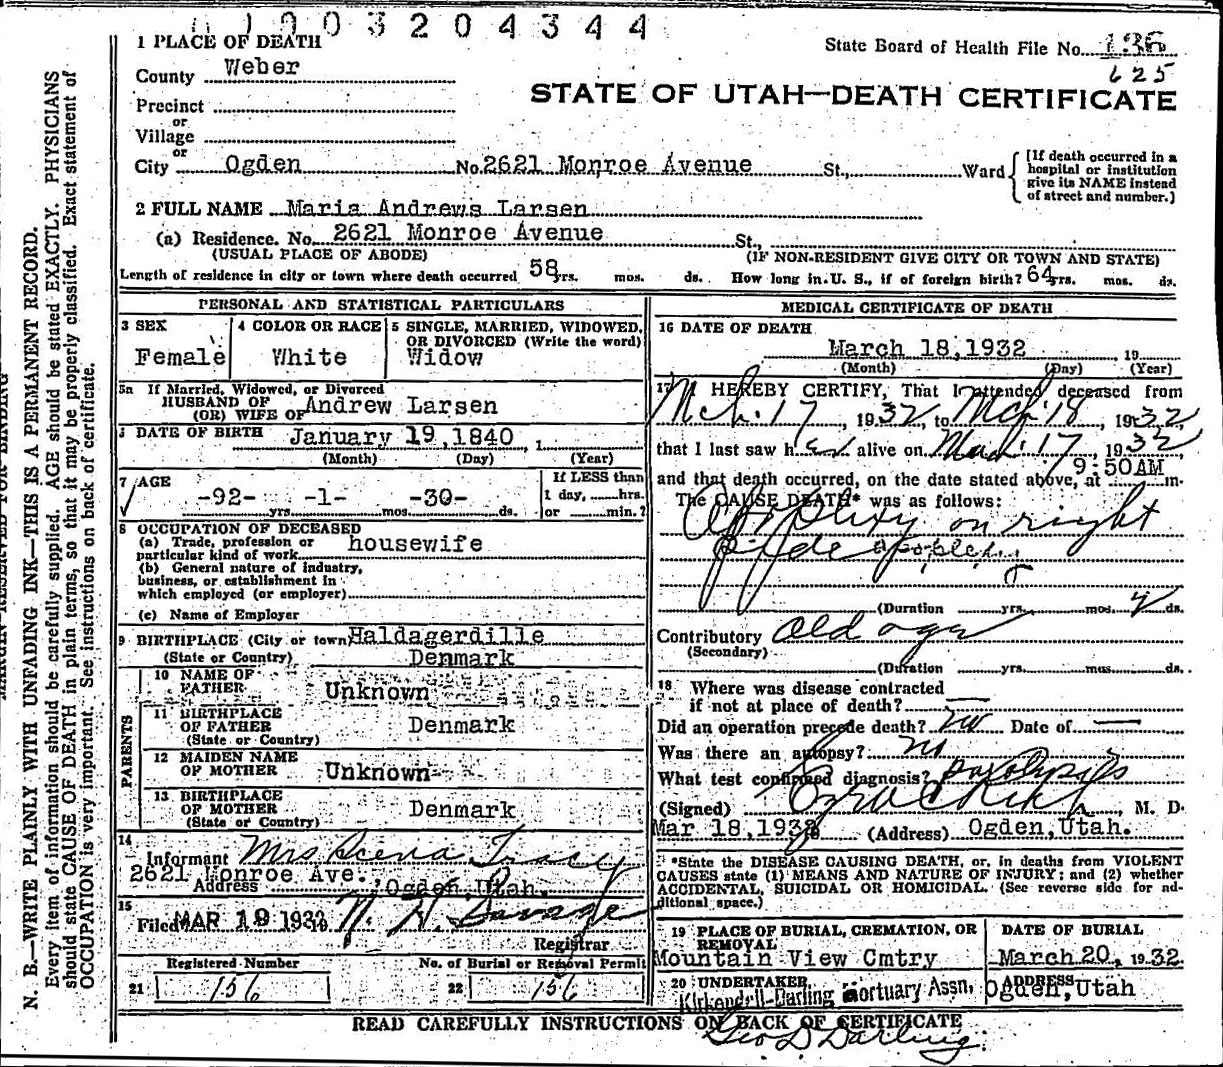 1003204344
1 PLACE OF DEATH
State Board of Health File No. 136
625
County Weber
STATE OF UTAH—DEATH CERTIFICATE
Precinct
or
Village
or
City Ogden No. 2621 Monroe Avenue St., Ward
[If death occurred in a hospital or institution give its NAME instead of street and number.]
2 FULL NAME Maria Andrews Larsen
(a) Residence. No. 2621 Monroe Avenue St.,
(USUAL PLACE OF ABODE) (IF NON-RESIDENT GIVE CITY OR TOWN AND STATE)
Length of residence in city or town where death occurred 58 yrs. mos. ds. How long in U. S., if of foreign birth? 64 yrs. mos. ds.
PERSONAL AND STATISTICAL PARTICULARS
3 SEX
Female
4 COLOR OR RACE
White
5 SINGLE, MARRIED, WIDOWED, OR DIVORCED (Write the word)
Widow
5a If Married, Widowed, or Divorced
HUSBAND OF
(OR) WIFE OF Andrew Larsen
DATE OF BIRTH January 19, 1840, 1
(Month) (Day) (Year)
7 AGE
-92- yrs. -1- mos. -30- ds.
If LESS than
1 day, hrs.
or min.?
8 OCCUPATION OF DECEASED
(a) Trade, profession or
particular kind of work housewife
(b) General nature of industry,
business, or establishment in
which employed (or employer)
(c) Name of Employer
9 BIRTHPLACE (City or town) Haldagerdille
(State or Country) Denmark
PARENTS
10 NAME OF FATHER Unknown
11 BIRTHPLACE OF FATHER Denmark
(State or Country)
12 MAIDEN NAME OF MOTHER Unknown
13 BIRTHPLACE OF MOTHER Denmark
(State or Country)
14
Informant Mrs Tracy
2621 Monroe Ave.
Address Ogden, Utah.
15
Filed MAR 19 1932 Savage
Registrar
Registered Number
21 156
No. of Burial or Removal Permit
22 156
MEDICAL CERTIFICATE OF DEATH
16 DATE OF DEATH
March 18, 1932 19
(Month) (Day) (Year)
17 I HEREBY CERTIFY, That I attended deceased from
Mch. 17, 1932, to Mch 18 1932,
that I last saw her alive on Mach 17, 1932
9:50AM
and that death occurred, on the date stated above, at m.
The CAUSE DEATH* was as follows:
Apoplexy on right
side apoplexy
(Duration yrs. mos. ds.
Contributory Old age
(Secondary)
(Duration yrs. mos. ds.
18 Where was disease contracted
if not at place of death?
Did an operation precede death? no Date of
Was there an autopsy? no
What test confirmed diagnosis? paralysis
(Signed) M. D.
Mar 18, 1932 (Address) Ogden, Utah.
*State the DISEASE CAUSING DEATH, or, in deaths from VIOLENT
CAUSES state (1) MEANS AND NATURE OF INJURY; and (2) whether
ACCIDENTAL, SUICIDAL OR HOMICIDAL. (See reverse side for additional space.)
19 PLACE OF BURIAL, CREMATION, OR REMOVAL
Mountain View Cmtry
DATE OF BURIAL
March 20, 1932.
20 UNDERTAKER
Kirkendall-Darling Mortuary Assn.
ADDRESS
Ogden, Utah
READ CAREFULLY INSTRUCTIONS ON BACK OF CERTIFICATE
Geo D Darling.
MARGIN RESERVED FOR BINDING
N. B.—WRITE PLAINLY WITH UNFADING INK—THIS IS A PERMANENT RECORD.
Every item of information should be carefully supplied. AGE should be stated EXACTLY. PHYSICIANS
should state CAUSE OF DEATH in plain terms, so that it may be properly classified. Exact statement of
OCCUPATION is very important. See instructions on back of certificate.